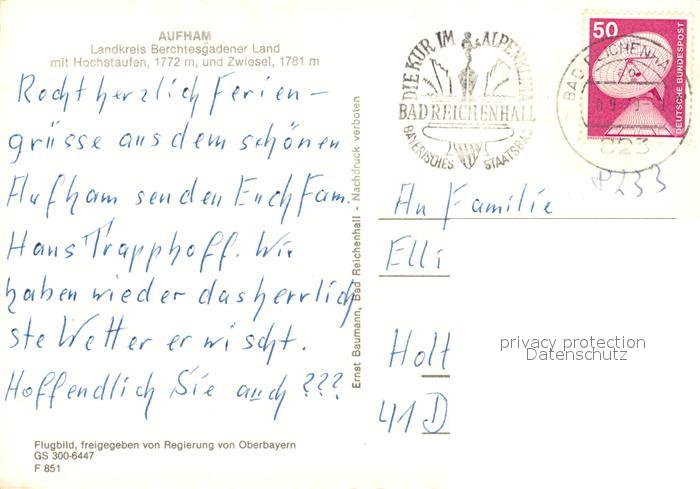 AUFHAM
Landkreis Berchtesgadener Land
mit Hochstaufen, 1772 m, und Zwiesel, 1781 m
Recht herzlich Ferien-
grüsse aus dem schönen
Aufham senden Euch Fam.
Hans Trapphoff. Wir
haben wieder das herrlich
ste Wetter erwischt.
Hoffendlich Sie auch ???
Flugbild, freigegeben von Regierung von Oberbayern
GS 300-6447
F 851
Ernst Baumann, Bad Reichenhall · Nachdruck verboten
DIE KUR IM ALPENKLIMA
BAD REICHENHALL
BAYERISCHES STAATSBAD
50
DEUTSCHE BUNDESPOST
BAD REICHENHA
823
An Familie
Elli
Holt
41 D
privacy protection
Datenschutz